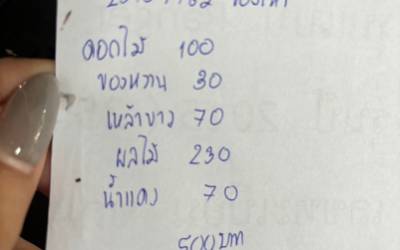 ดอกไม้ 100
ของหวาน 30
เหล้าขาว 70
ผลไม้ 230
น้ำแดง 70
500 บาท